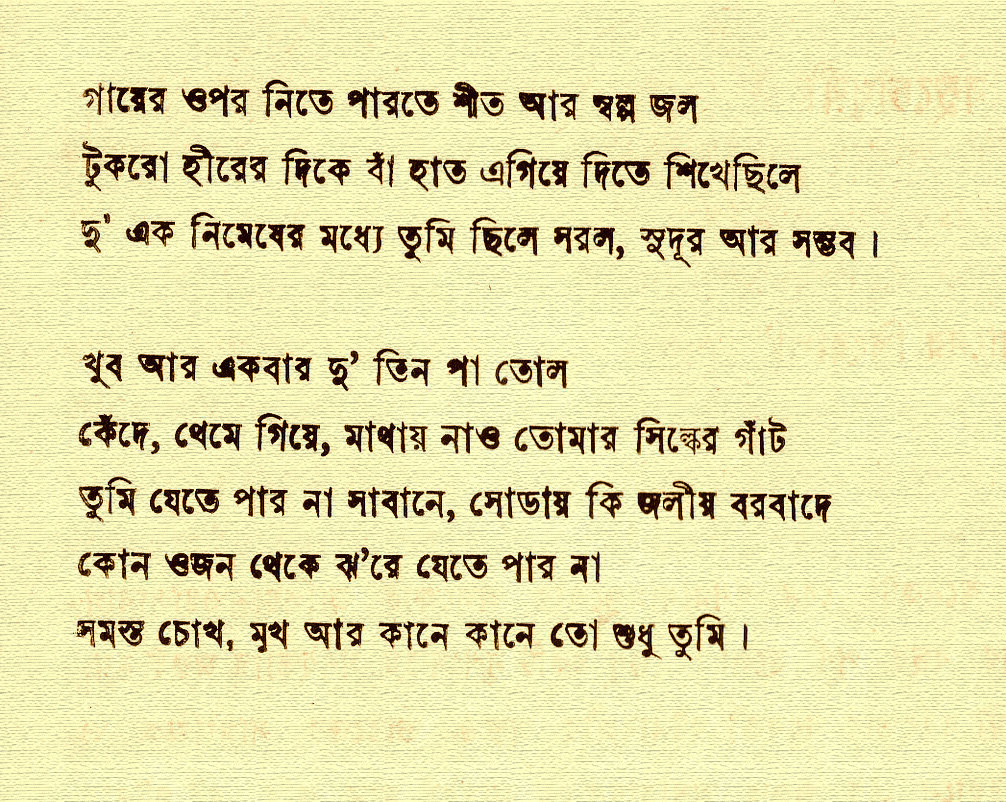 গায়ের ওপর নিতে পারতে শীত আর স্বল্প জল
টুকরো হীরের দিকে বাঁ হাত এগিয়ে দিতে শিখেছিলে
দু' এক নিমেষের মধ্যে তুমি ছিলে সরল, সুদূর আর সম্ভব।
খুব আর একবার দু' তিন পা তোল
কেঁদে, থেমে গিয়ে, মাথায় নাও তোমার সিল্কের গাঁট
তুমি যেতে পার না সাবানে, সোডায় কি জলীয় বরবাদে
কোন ওজন থেকে ঝ'রে যেতে পার না
সমস্ত চোখ, মুখ আর কানে কানে তো শুধু তুমি।